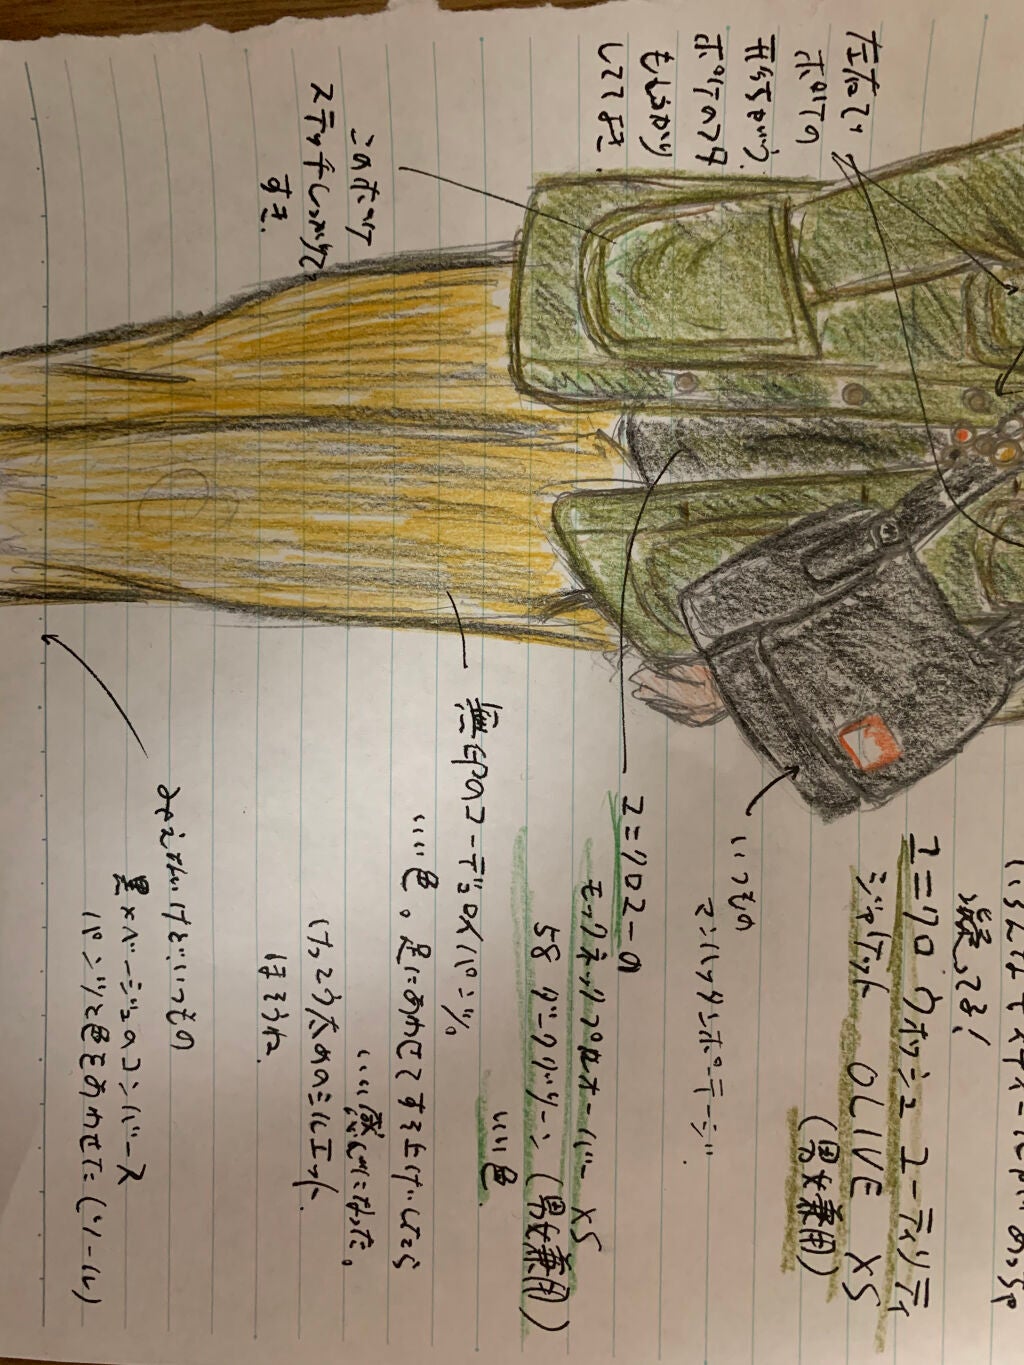 左右でい
ポッケの
形ちがう。
ポッケのフタ
もしっかり
してて好き.
このポッケ
ステッチしっかりで
すき.
凝ってる!
ユニクロ ウォッシュ ユーティリティ
ジャケット OLIVE XS
(男女兼用)
いつもの
マンハッタンポーテージ.
ユニクロユーの
モックネックプルオーバー XS
58 ダークグリーン (男女兼用)
いい色.
無印のコーデュロイパンツ。
いい色。足にあわせてすそ上げしてたら
いい感じになった。
けっこう太めのシルエット.
はきらく.
みえないけどいつもの
黒×ベージュのコンバース
パンツと色をあわせた (ソール)